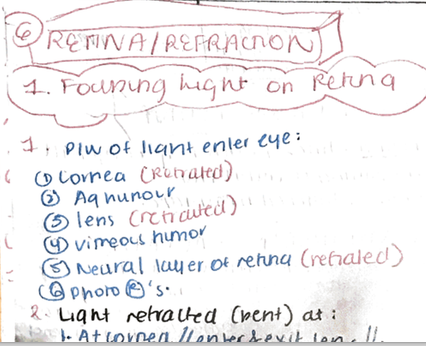 6 RETINA/REFRACTION
1. Focusing Light on Retina
1. Plw of light enter eye:
① Cornea (Refracted)
② Aq humour
③ lens (refracted)
④ vitreous humor
⑤ Neural layer of retina (refracted)
⑥ photo Ⓡ's.
2. Light refracted (bent) at:
1. At cornea // enter & exit len //